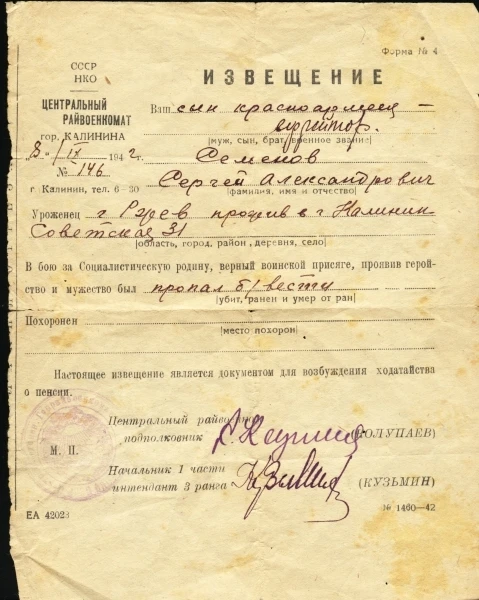 Форма № 4
СССР
НКО
ЦЕНТРАЛЬНЫЙ
РАЙВОЕНКОМАТ
гор. КАЛИНИНА
8/IX 1942 г.
№ 146
г. Калинин, тел. 6-30
ИЗВЕЩЕНИЕ
Ваш сын красноармеец –
(муж, сын, брат, военное звание)
Семенов
Сергей Александрович
(фамилия, имя и отчество)
Уроженец г Ржев прожив в г Калинин
Советская 31
(область, город, район, деревня, село)
В бою за Социалистическую родину, верный воинской присяге, проявив герой-
ство и мужество был пропал б/вести
(убит, ранен и умер от ран)
Похоронен
(место похорон)
Настоящее извещение является документом для возбуждения ходатайства
о пенсии.
Центральный
подполковник (ГОЛУПАЕВ)
М. П.
Начальник 1 части
интендант 3 ранга (КУЗЬМИН)
ЕА 42023
№ 1460—42